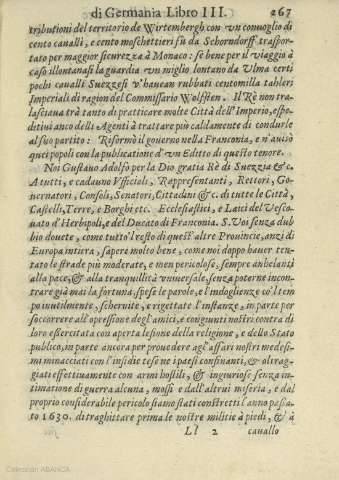 di Germania Libro III. 267
tributioni del territorio de Wirtembergh con vn conuoglio di
cento caualli, e cento moschettieri sù da Schorndorff traspor-
tato per maggior sicurezza à Monaco: se bene per il viaggio à
caso illontanasi la guardia vn miglio lontano da Vlma certi
pochi caualli Suezzesi v'hauean rubbati centomilla talleri
Imperiali di ragion del Commissario Wolfsten. Il Rè non tra-
lasciaua trà tanto di pratticare molte Città dell'Imperio, espe-
ditiui anco delli Agenti à trattare più caldamente di condurle
al suo partito: Riformò il gouerno nella Franconia, e n'auisò
quei popoli con la publicatione d'vn Editto di questo tenore.
Noi Gustauo Adolfo per la Dio gratia Rè di Suezzia &c.
A tutti, e cadauno Vfficiali, Rappresentanti, Rettori, Go-
uernatori, Consoli, Senatori, Cittadini &c. di tutte le Città,
Castelli, Terre, e Borghi etc. Ecclesiastici, e Laici del Vesco-
uato d'Herbipoli, e del Ducato di Franconia. S. Voi senza dub
bio douete, come tutto'l resto di quest'altre Prouincie, anzi di
Europa intiera, sapere molto bene, come noi doppo hauer ten-
tato le strade più moderate, e men pericolose, sempre anhelandi
alla pace, & alla tranquillità vniuersale, senza poterne incon-
trare già mai la fortuna, spese le parole, e l'indoglienze co'l tem
po inutilmente, schernite, e rigettate l'instanze, in parte per
soccorrere all'opressione degl'amici, e congiunti nostri contra di
loro essercitata con aperta lesione della religione, e dello Stato
publico, in parte ancora per prouedere agl'affari nostri medesi-
mi minacciati con l'insidie tese ne i paesi confinanti, & oltrag-
giati effettiuamente con armi hostili, & ingiuriose senza in-
timatione di guerra alcuna, mossi e dall'altrui miseria, e dal
proprio considerabile pericolo siamo stati constretti l'anno passa-
to 1630. di traghittare prima le nostre militie à piedi, & à
Ll 2 cauallo
Colección ABANCA